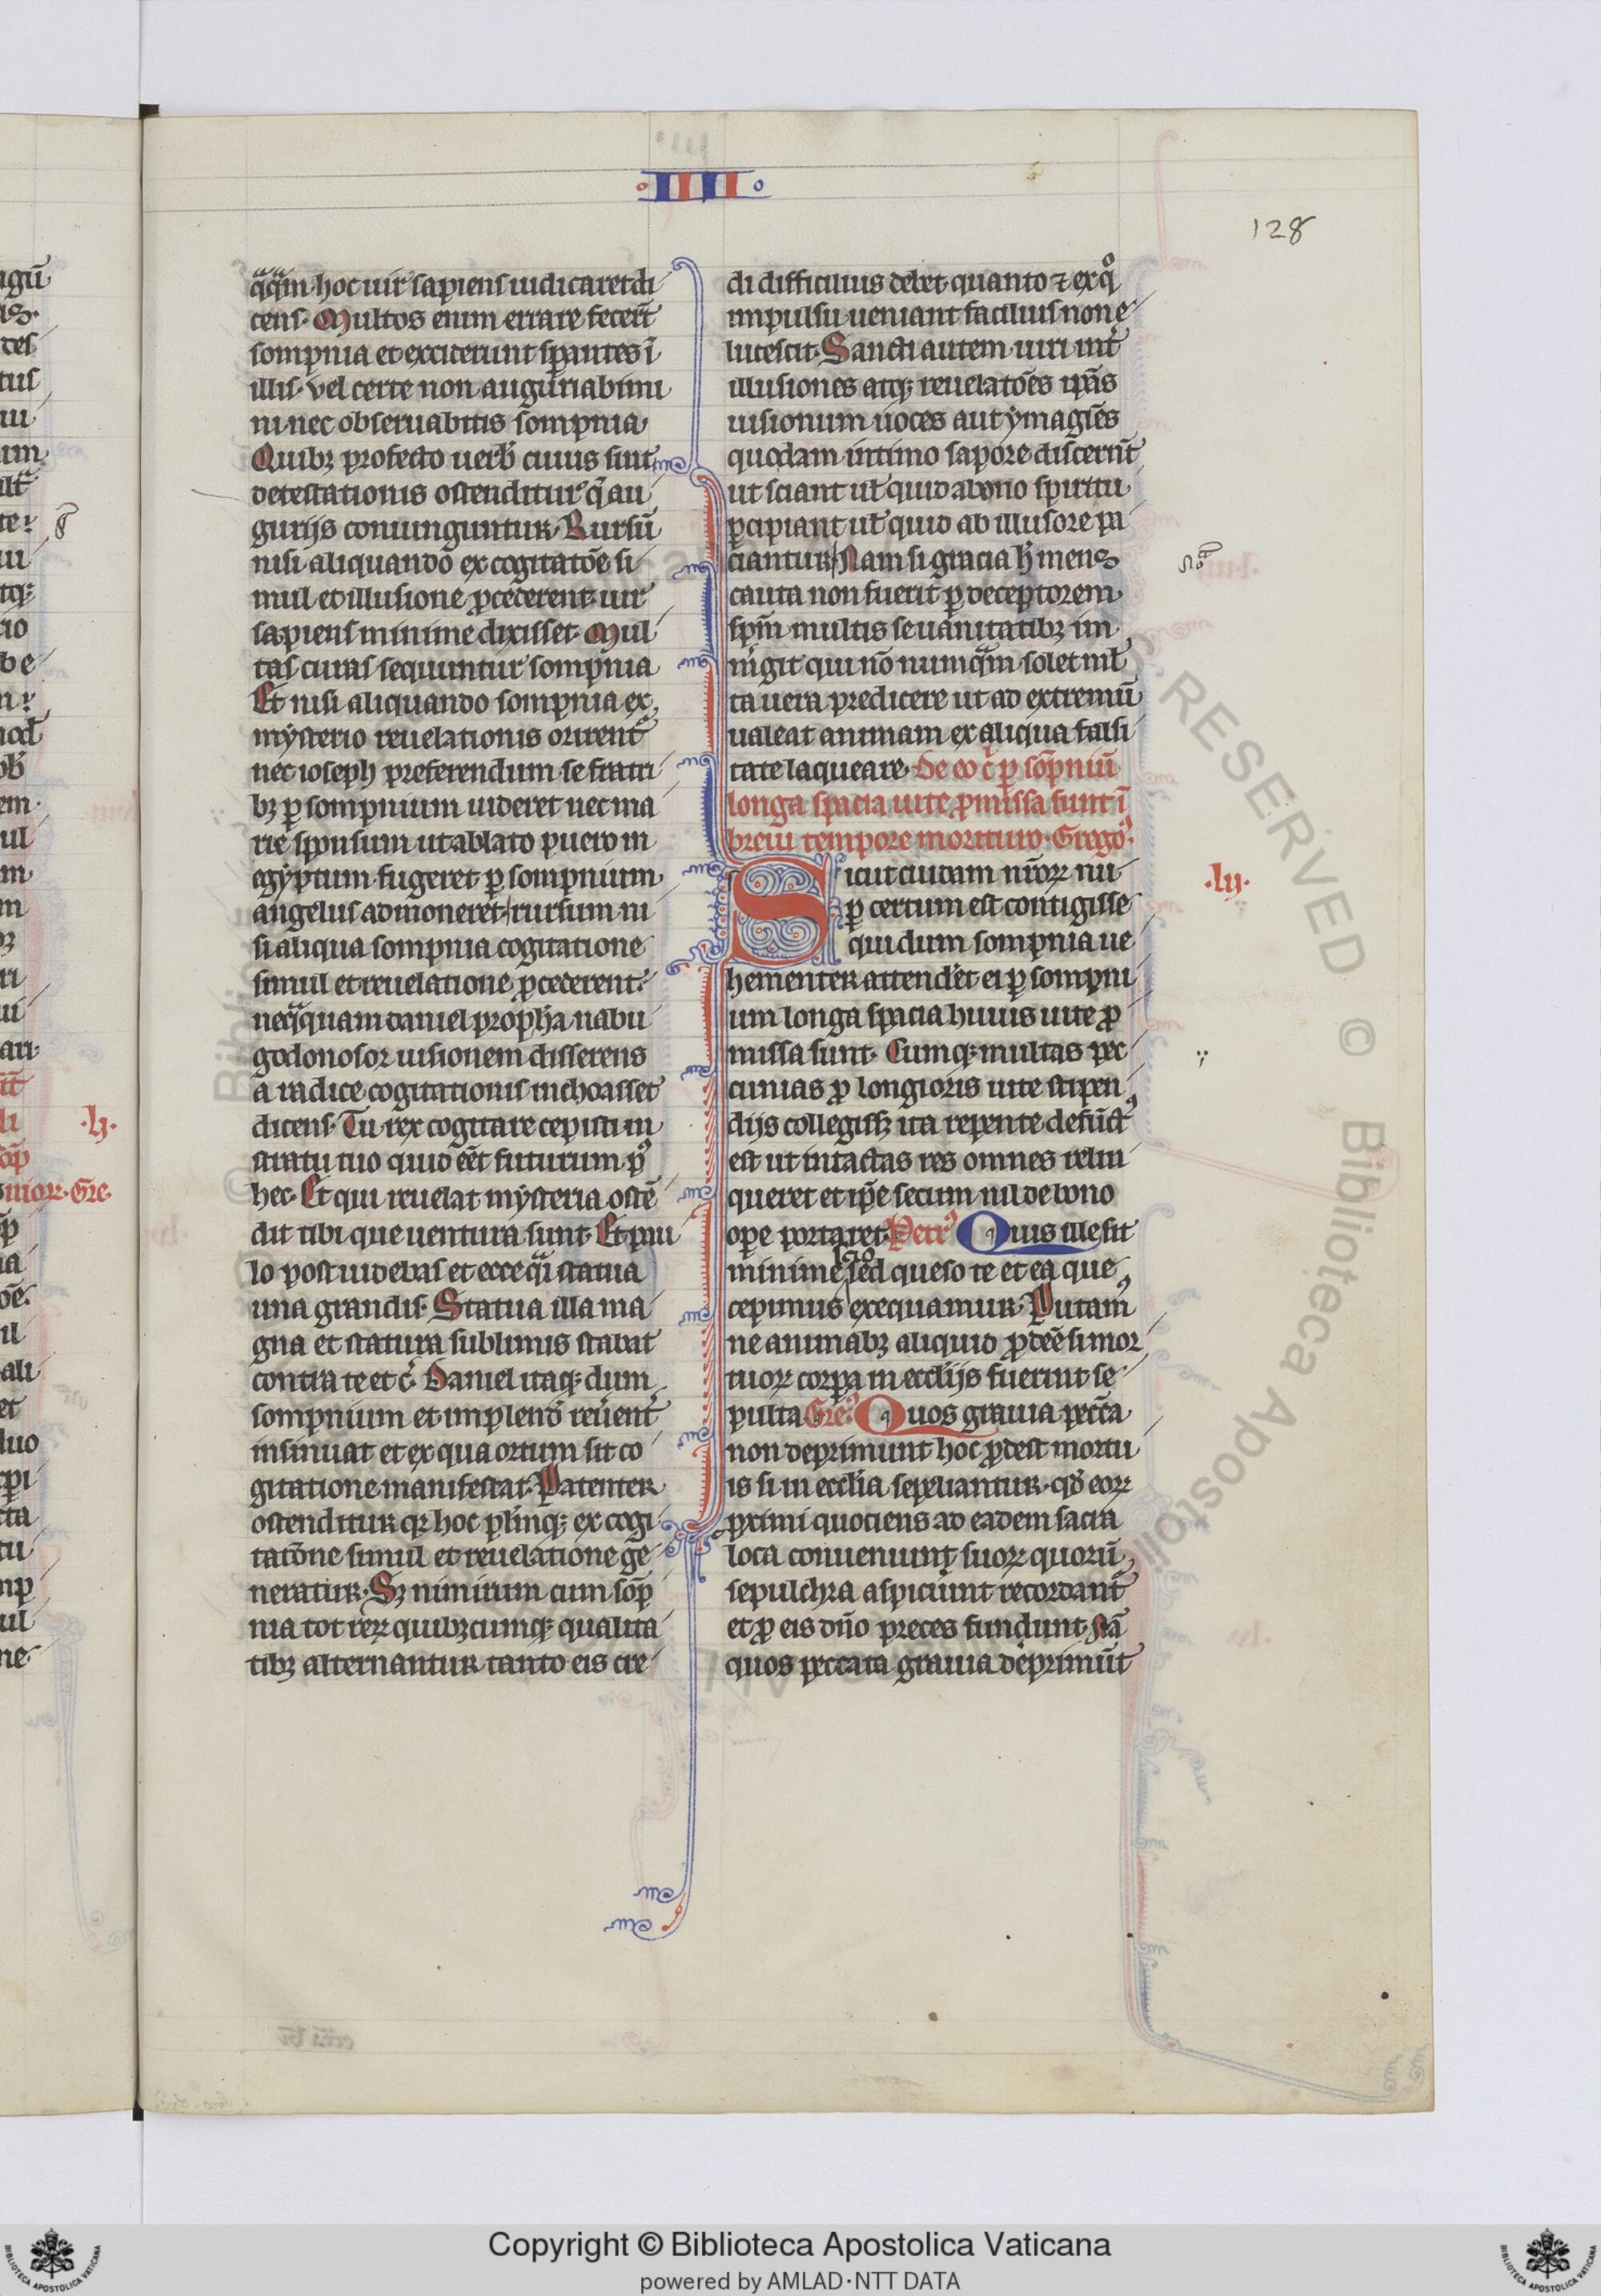 ·IIII·
128
q̄q̄m hoc uir sapiens iudicaret di
cens. Multos enim errare fecer̄t
sompnia et exciderunt sp̄antes ī
illis. vel certe non auguriabimi
ni nec obseruabitis sompnia
Quibꝫ profecto uerb̄ cuius sint
detestationis ostenditur q̄ au
gurijs coniunguntur. Rursū
nisi aliquando ex cogitatōe si
mul et illusione ꝓcederent uir
sapiens minime dixisset. Mul
tas curas sequuntur sompnia
Et nisi aliquando sompnia ex
mẏsterio reuelationis orirent᷑
nec ioseph preferendum se fratri
bꝫ ꝑ sompnium uideret nec ma
rie sponsum ut ablato puero in
egẏptum fugeret ꝑ sompnium
angelus admoneret rursum ni
si aliqua sompnia cogitatione
simul et reuelatione ꝓcederent.
neq̄quam daniel proph̄a nabu
godonosor uisionem disserens
a radice cogitationis inchoasset
dicens. Tu rex cogitare cepisti in
stratu tuo quid eēt futurum pꝰ
hec. Et qui reuelat mẏsteria ostē
dit tibi que uentura sunt. Et pau
lo post uidebas et ecce q̄i statua
una grandis. Statua illa ma
gna et statura sublimis stabat
contra te et c̄. Daniel itaqꝫ dum
sompnium et implend̄ reuēent᷑
insinuat et ex qua ortum sit co
gitatione manifestat. Patenter
ostenditur qꝛ hoc plīnqꝫ ex cogi
tatōne simul et reuelatione ge
neratur. Sꝫ nimirum cum sōp
nia tot rerꝝ quibꝫcumqꝫ qualita
tibꝫ alternantur tanto eis cre
di difficilius debet quanto ⁊ ex qͦ
impulsu ueniant facilius non e
lucescit. Sancti autem uiri int̄
illusiones atqꝫ reuelatōes ip̄as
uisionum uoces aut ẏmagīes
quodam intimo sapore discernt̄
ut sciant ul̄ quid a bono spiritu
ꝑcipiant ul̄ quid ab illusore pa
ciantur. Nam si gracia h̄ mens
cauta non fuerit ꝑ deceptorem
sp̄m multis se uanitatibꝫ im
mergit qui nō numq̄m solet ml̄
ta uera predicere ut ad extremū
ualeat animam ex aliqua falsi
tate laqueare. De eo c̄ ꝑ sōpniū
longa spacia uite ꝓmissa sunt ī
breui tempore morituro. Gregoꝰ.
·lij·
Sicut cuidam nr̄orꝝ nu
ꝑ certum est contigisse
qui dum sompnia ue
hementer attendēt ei ꝑ sompni
um longa spacia huius uite ꝓ
missa sunt. Cumqꝫ multas pec
cunias ꝓ longioris uite stipen
dijs collegissꝫ ita repente defūctꝰ
est ut intactas res omnes relin
queret et ip̄e secum nil de bono
oꝑe portaret. Petrꝰ Quis ille sit
minime sed queso te et ea que
cepimus exequamur. Putamꝰ
ne animabꝫ aliquid ꝓdeē si mor
tuorꝝ corꝑa in ecclījs fuerint se
pulta Greꝰ. Quos grauia pecc̄a
non deprimunt hoc ꝓdest mortu
is si in ecclīa sepeliantur. qd̄ eorꝝ
ꝓximi quociens ad eadem sacra
loca conueniunt suorꝝ quorū
sepulchra aspiciunt recordant᷑
et ꝓ eis dn̄o preces fundunt. Nā
quos peccata grauia deprimūt
·lj·